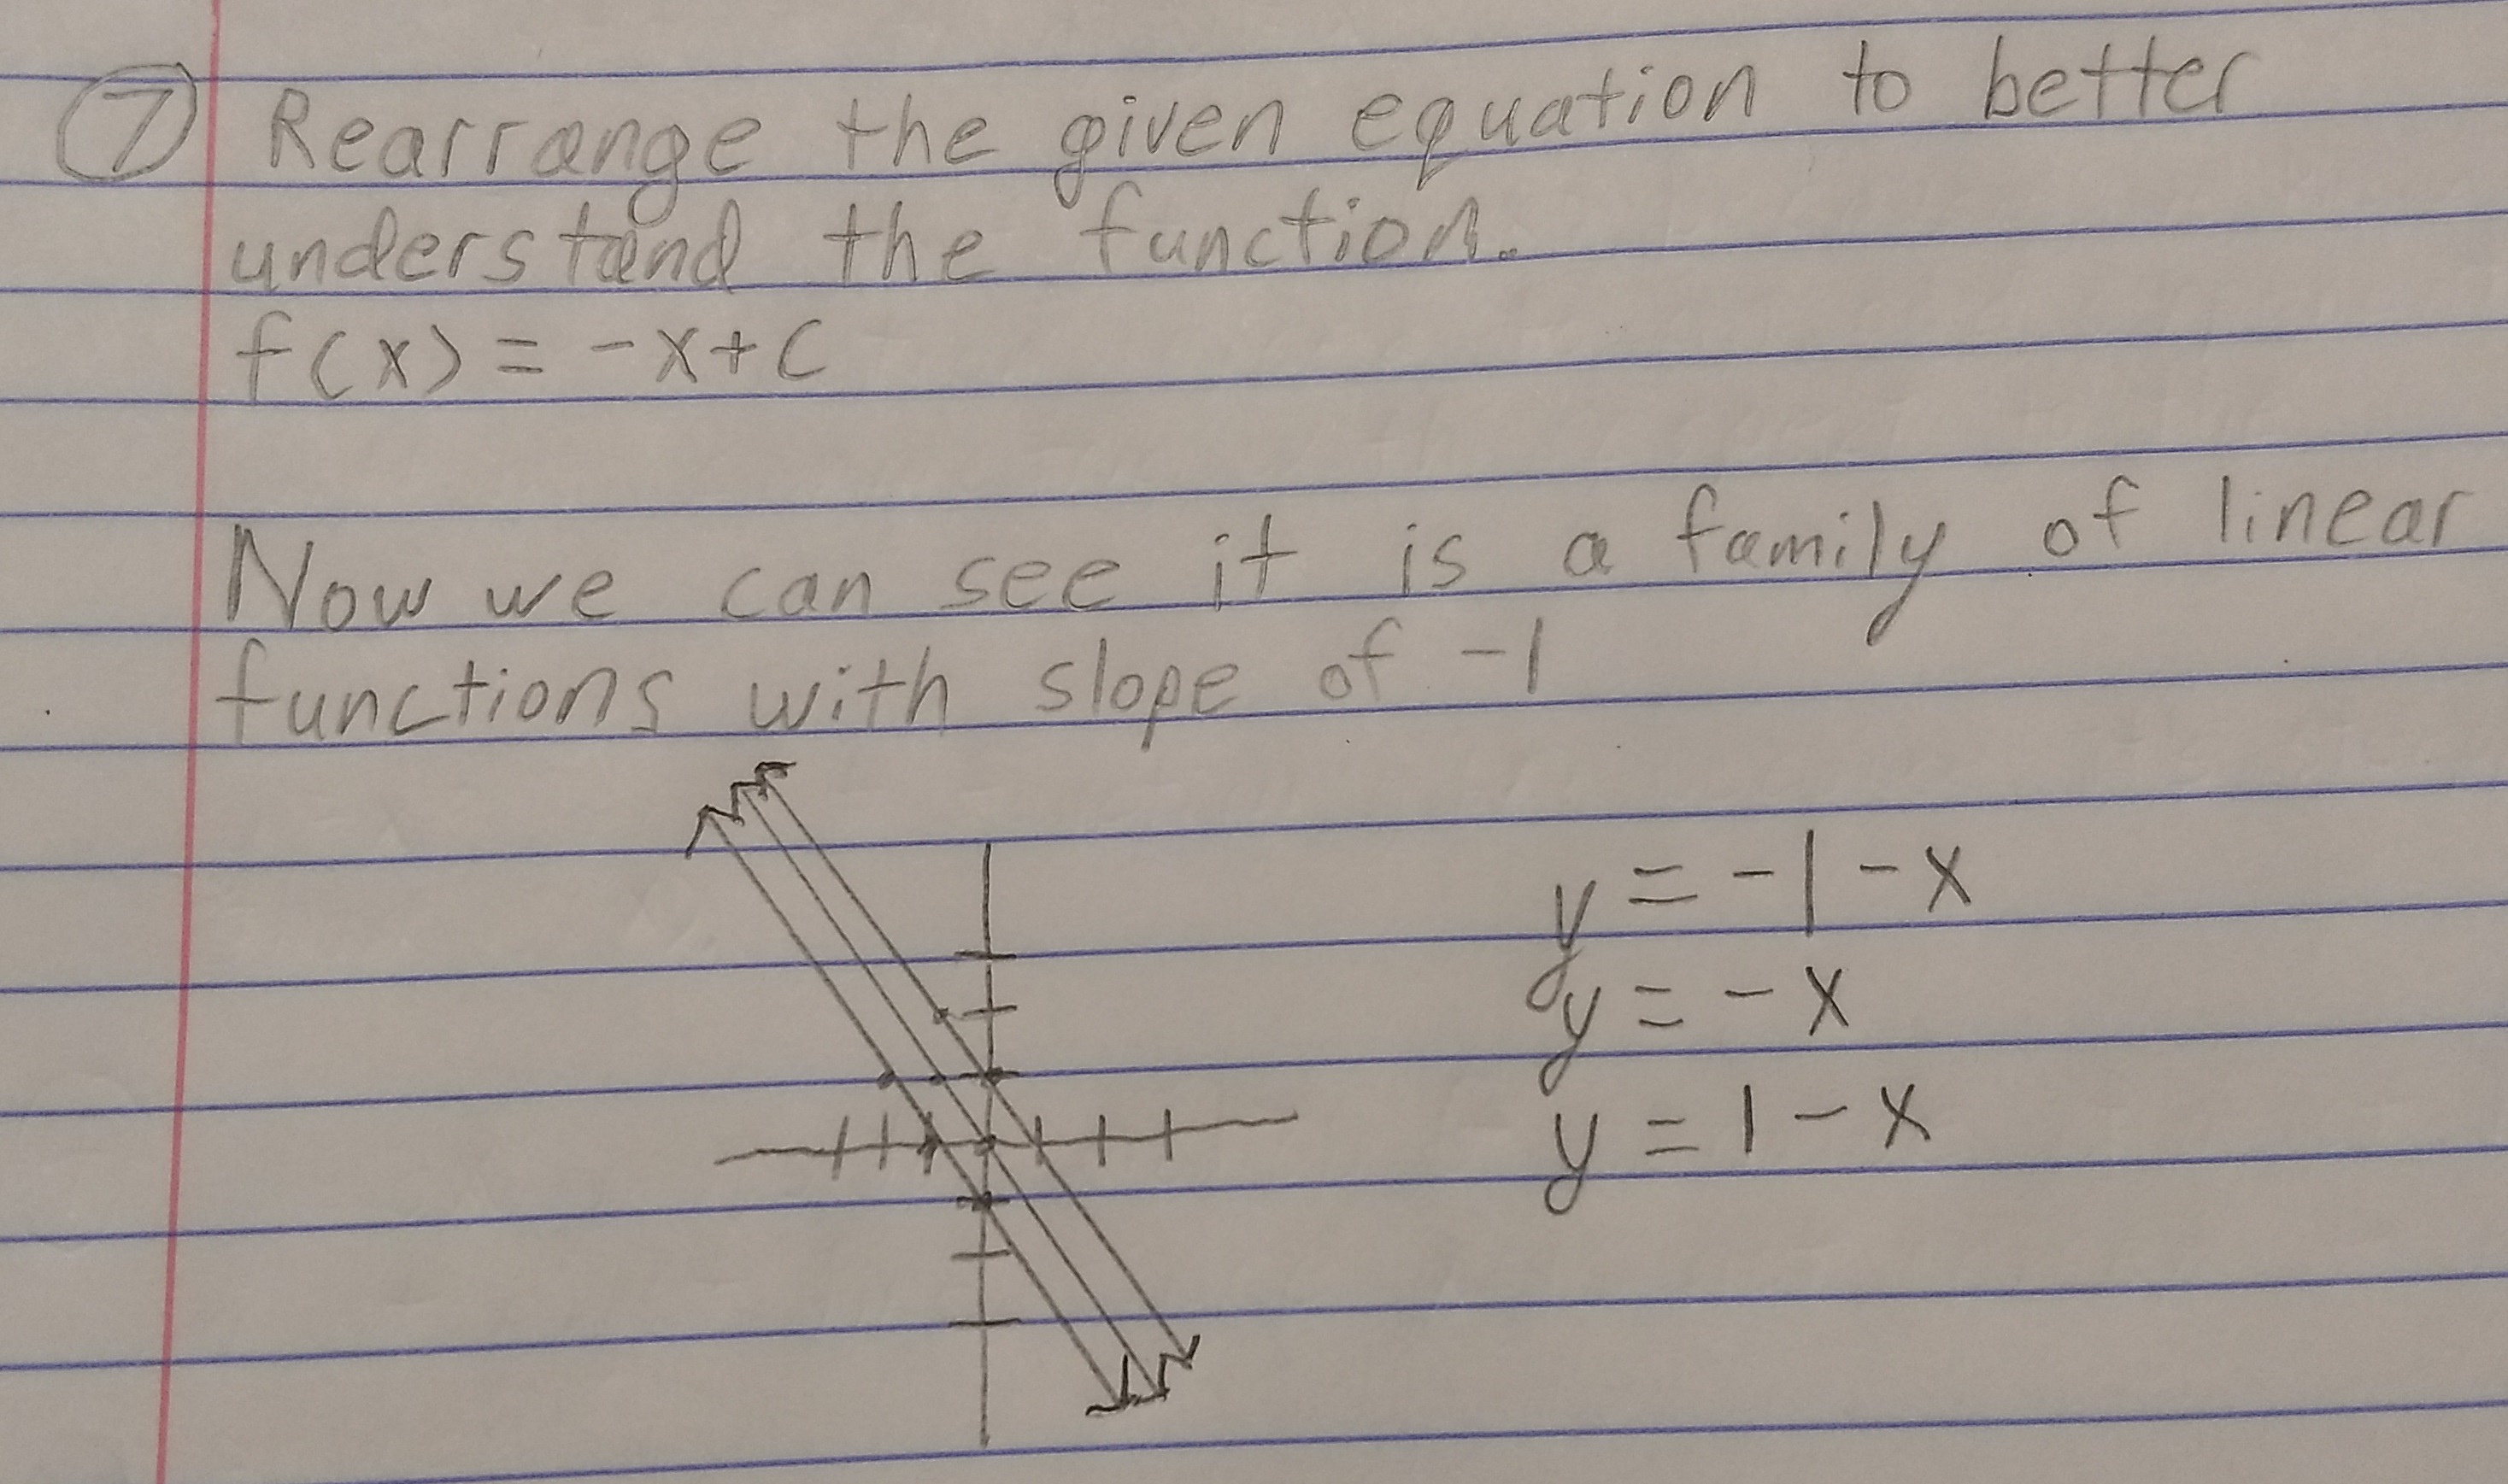 7 Rearrange the given equation to better
understand the function.
f(x) = -x+c
Now we can see it is a family of linear
functions with slope of -1
y = -1 - x
y = - x
y = 1 - x